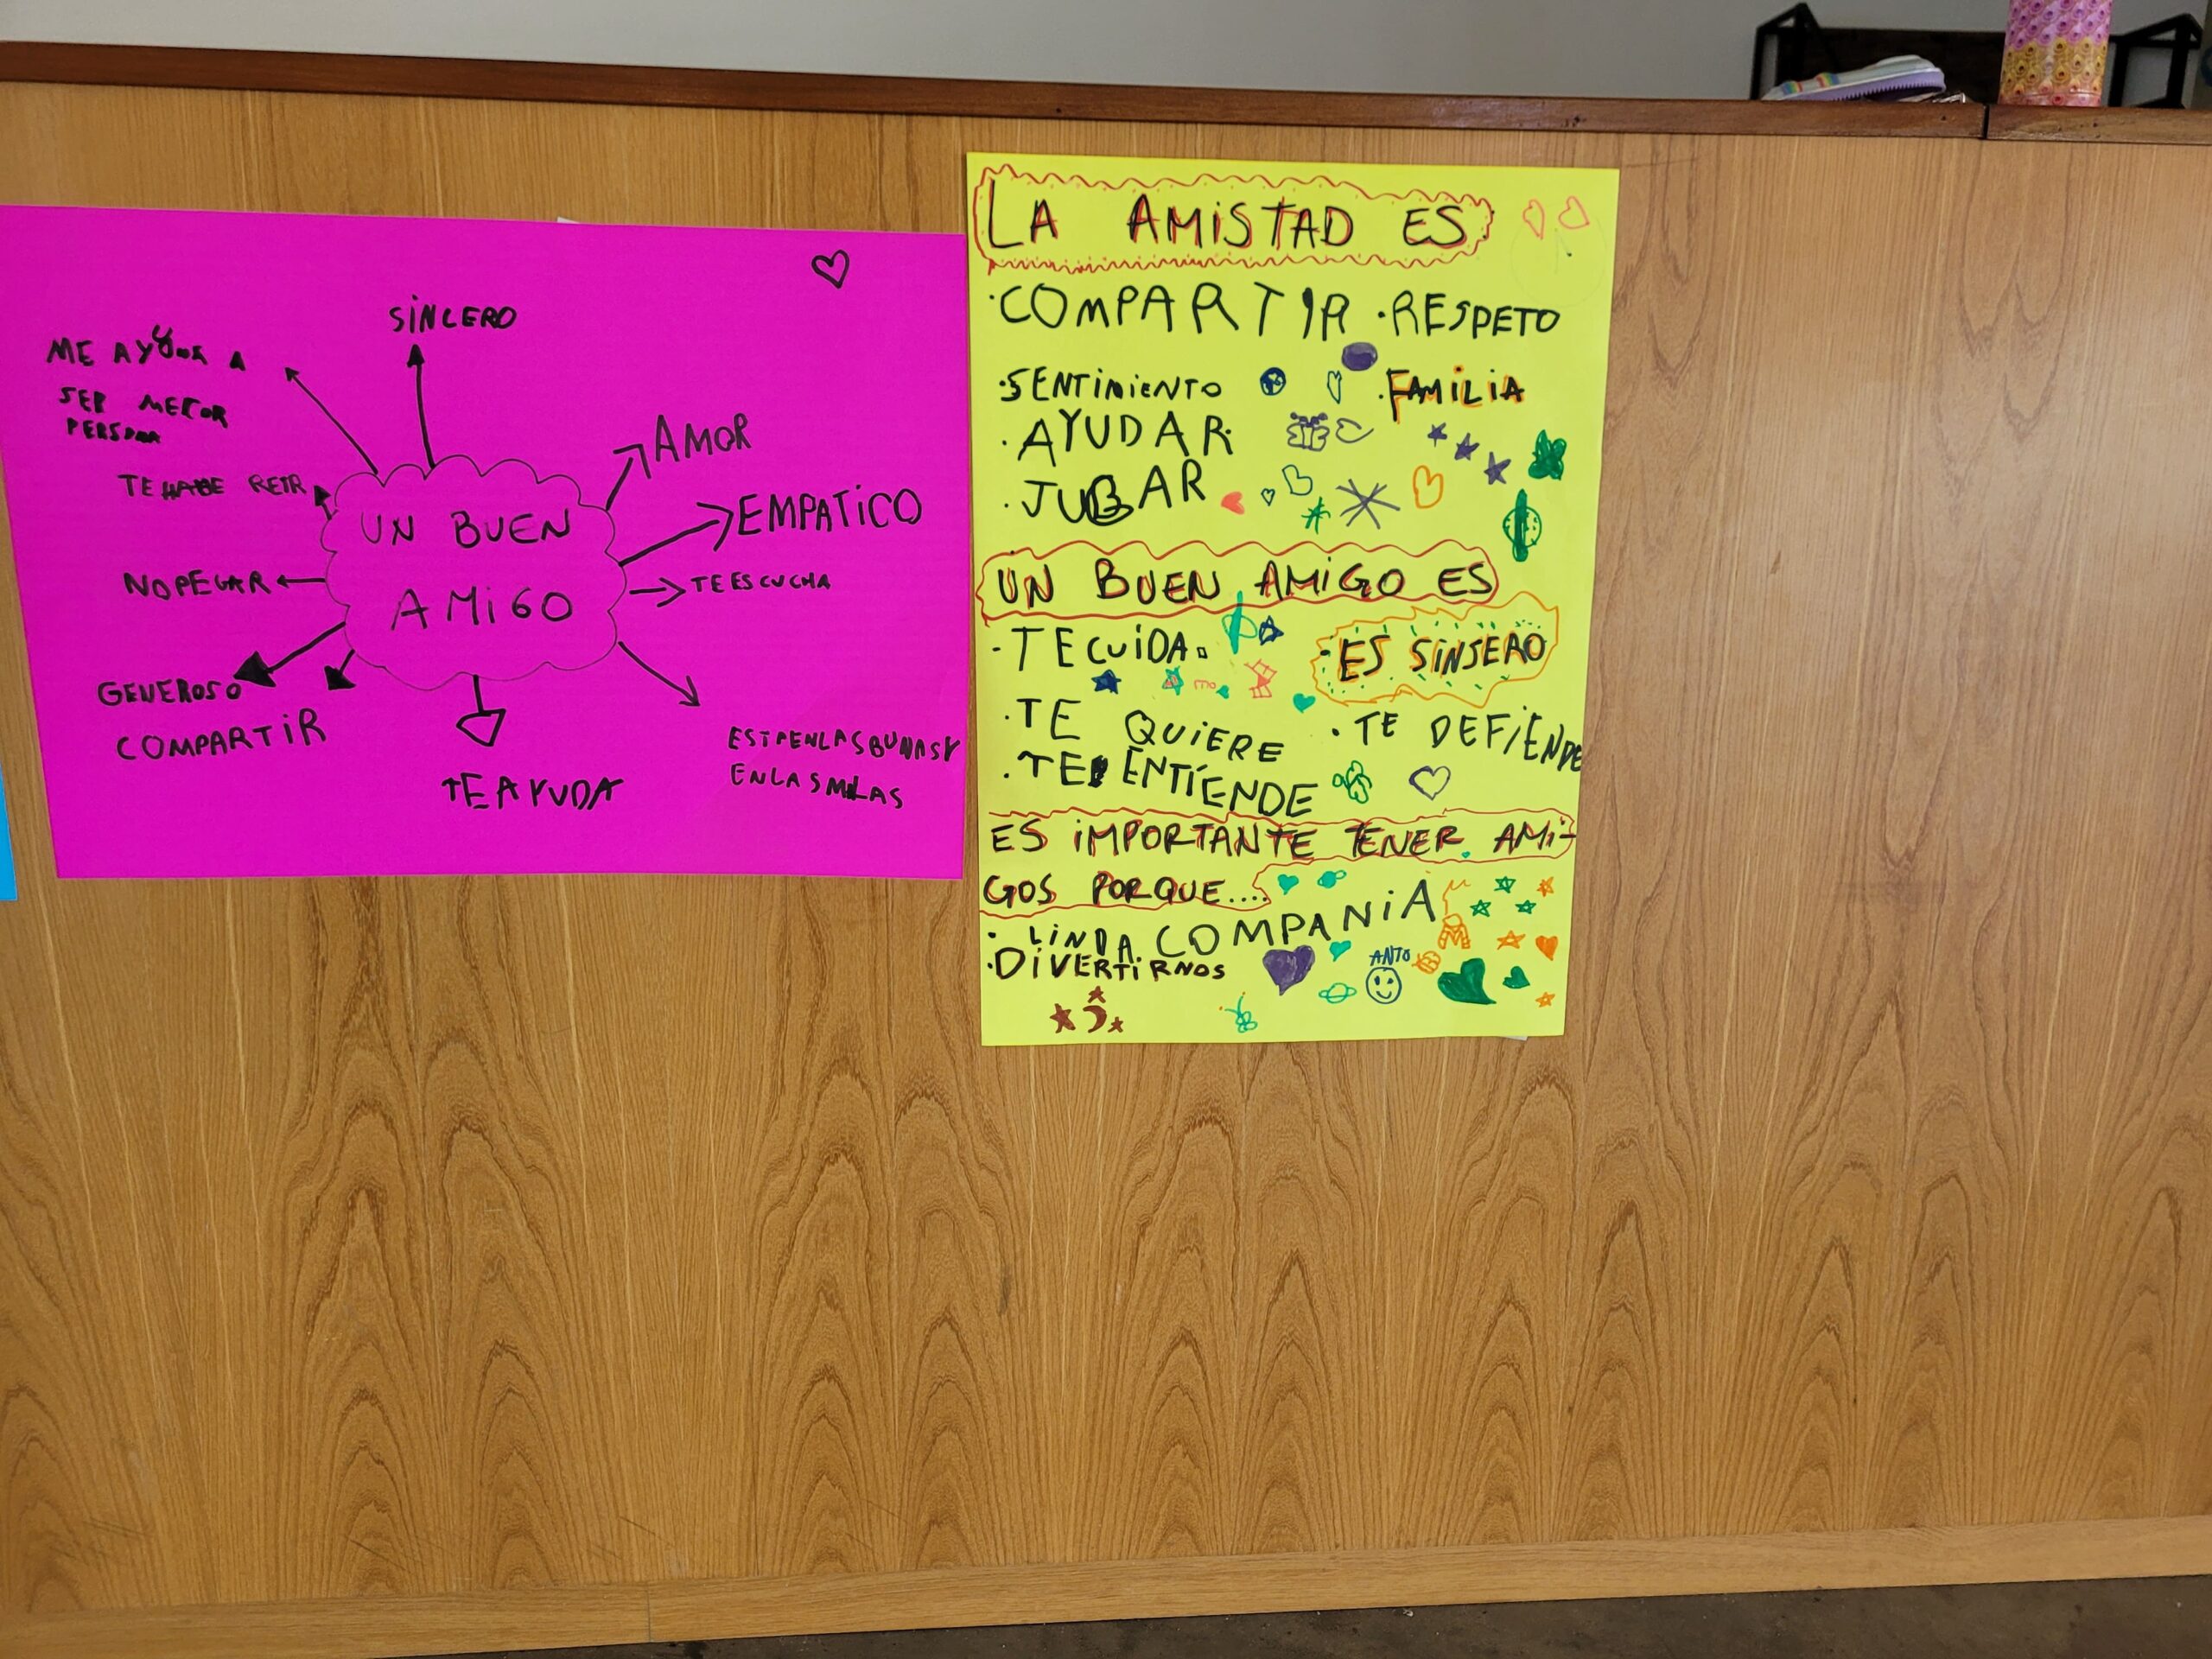 SINCERO
ME AYUDA A
SER MEJOR
PERSONA
AMOR
TE HACE REIR
EMPATICO
UN BUEN
AMIGO
NO PEGAR
TE ESCUCHA
GENEROSO
COMPARTIR
TE AYUDA
ESTA EN LAS BUNAS Y
EN LAS MALAS
LA AMISTAD ES
·COMPARTIR ·RESPETO
·SENTIMIENTO ·FAMILIA
·AYUDAR
·JUGAR
UN BUEN AMIGO ES
·TE CUIDA. ·ES SINSERO
·TE QUIERE ·TE DEFIENDE
·TE ENTIENDE
ES IMPORTANTE TENER AMI-
GOS PORQUE....
· LINDA COMPANIA
·DIVERTIRNOS
ANTO